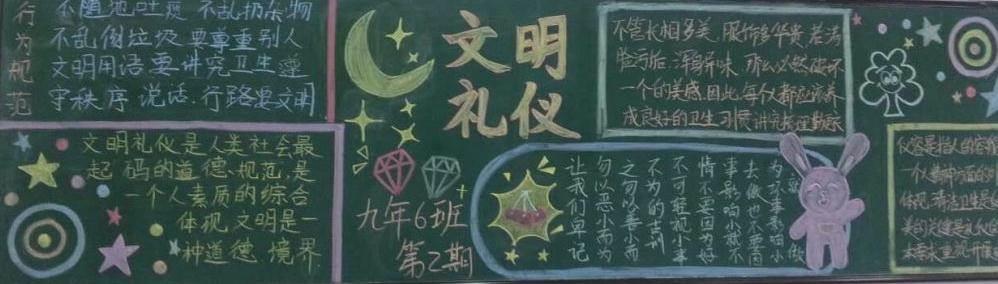 行为规范
不随地吐痰 不乱扔杂物
不乱倒垃圾 要尊重别人
文明用语要讲究卫生遵
守秩序说话.行路要文明
文明礼仪是人类社会最
起码的道德规范,是
一个人素质的综合
体现,文明是一
种道德境界
文明
礼仪
九年6班
第2期
不管长相多美,服饰多华贵,若满
脸污垢,浑身异味,那必然破坏
一个的美感,因此,每人都应该养
成良好的卫生习惯
让我们牢记
勿以恶小而为
之勿以善小而
不为的古训
不可轻视小事
情不要因为好
事影响小就不
去做也不要因
为坏事影响小
一个人
体现
本要求